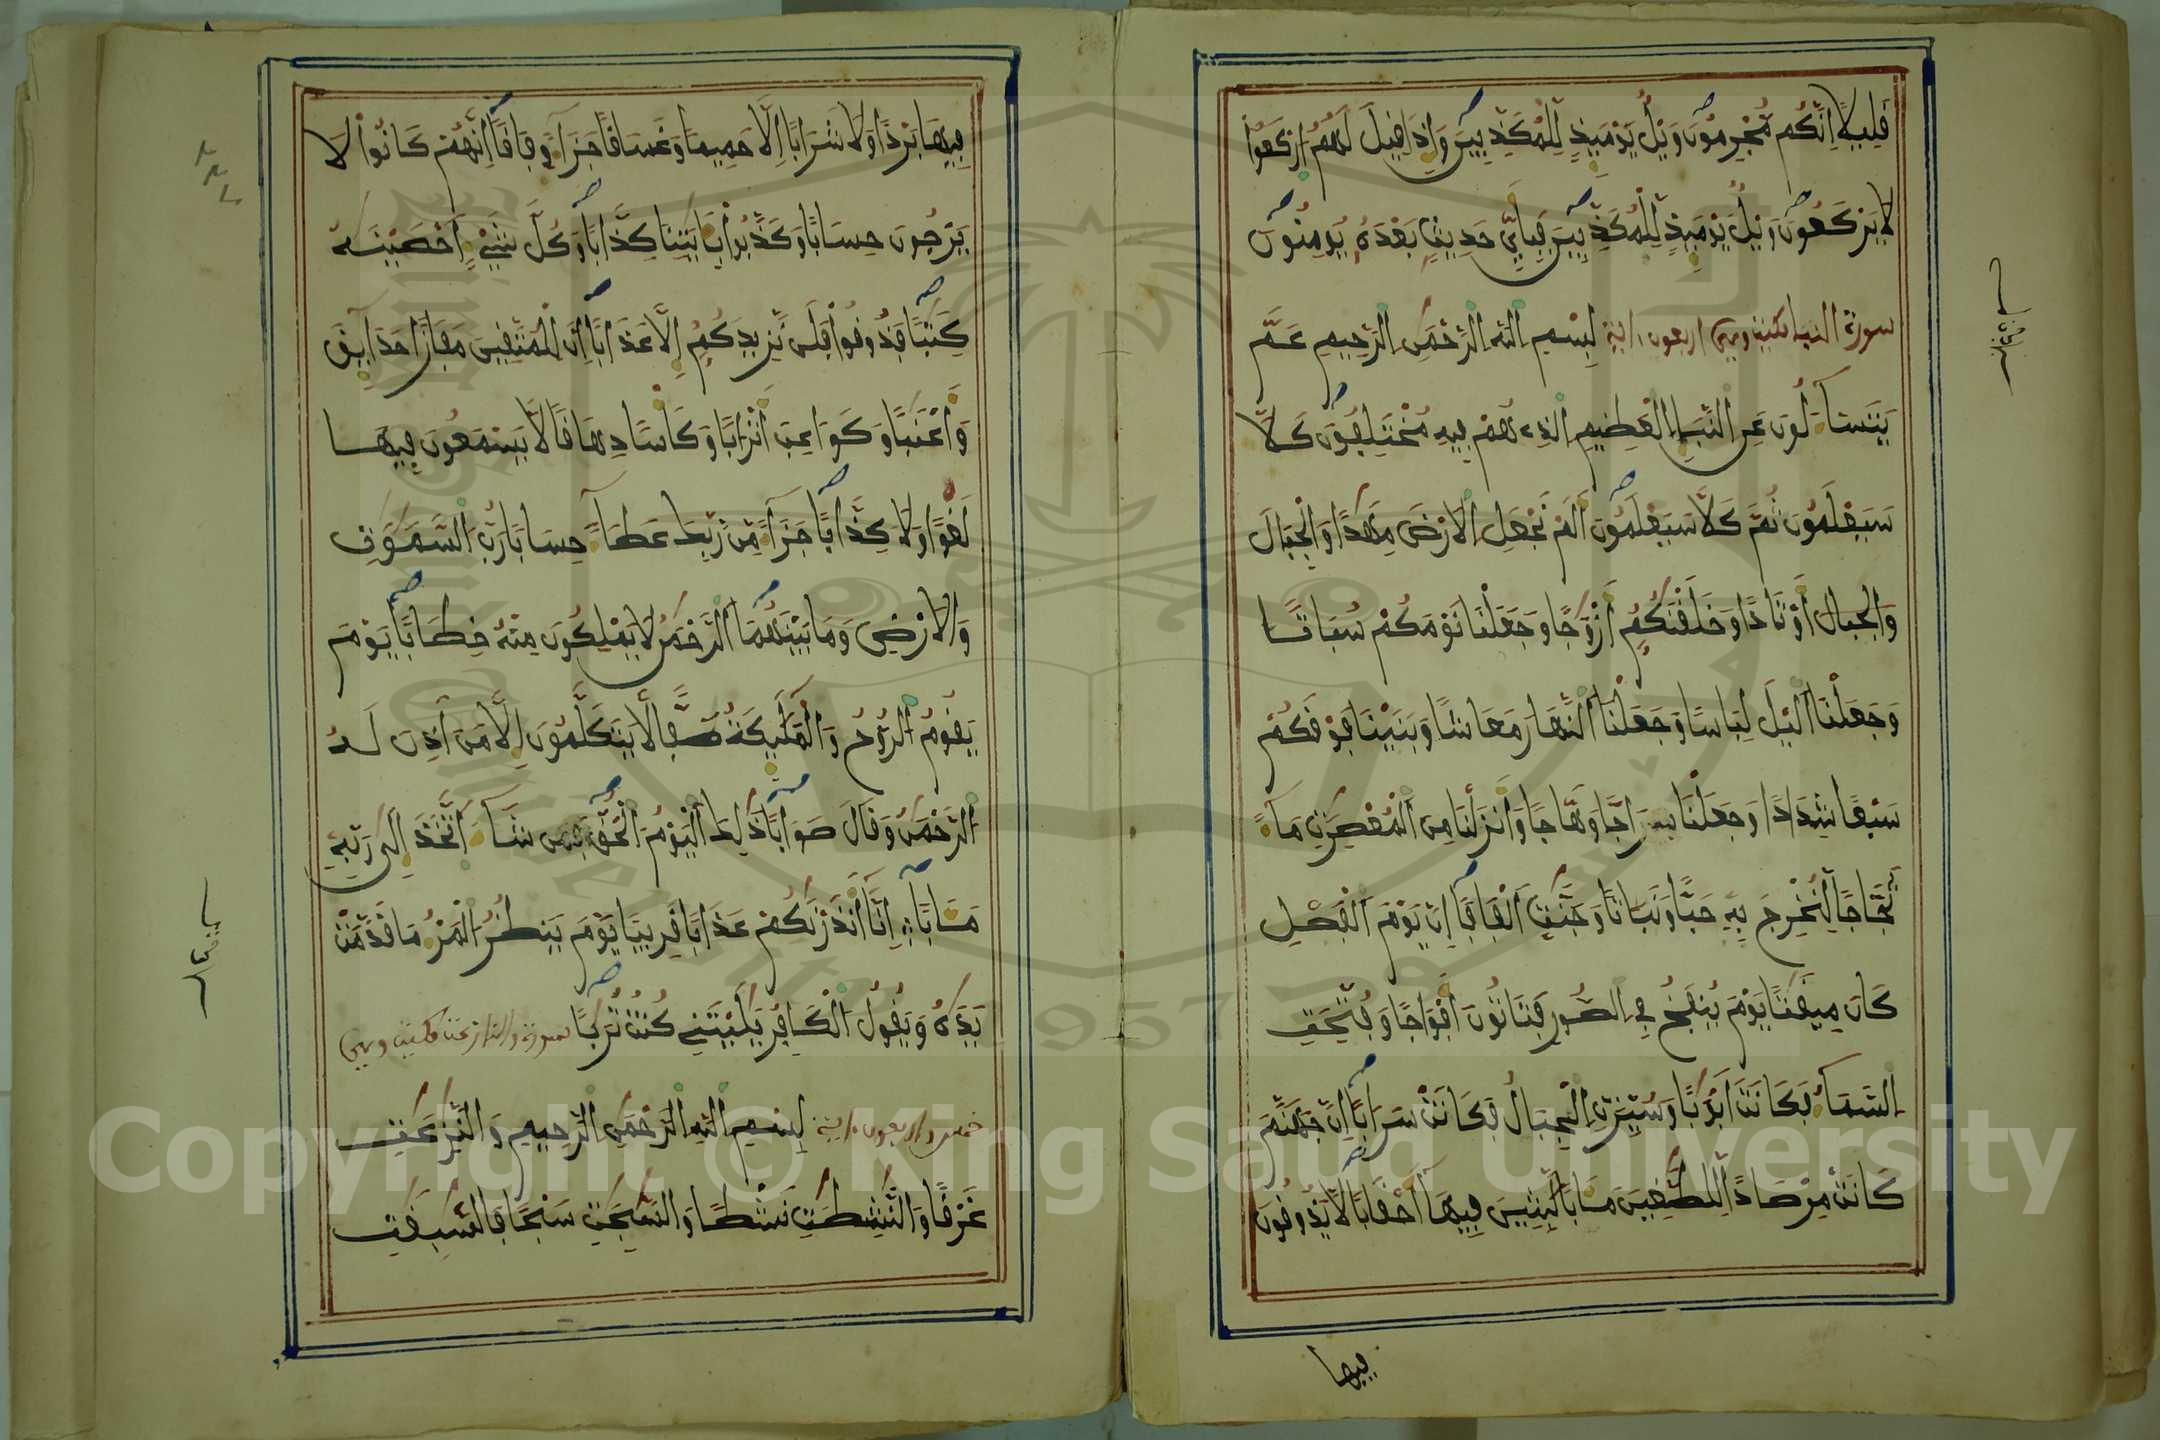 قليلا انكم مجرمون ويل يومئذ للمكذبين واذا قيل لهم اركعوا
لا يركعون ويل يومئذ للمكذبين فبأي حديث بعده يومنون
سورة النبإ مكية وهي اربعون اية بسم الله الرحمن الرحيم عم
يتساءلون عن النبإ العظيم الذي هم فيه مختلفون كلا
سيعلمون ثم كلا سيعلمون الم نجعل الارض مهدا والجبال
والجبال اوتادا وخلقنكم ازوجا وجعلنا نومكم سباتا
وجعلنا اليل لباسا وجعلنا النهار معاشا وبنينا فوقكم
سبعا شدادا وجعلنا سراجا وهاجا وانزلنا من المعصرت ماء
ثجاجا لنخرج به حبا ونباتا وجنت الفافا ان يوم الفصل
كان ميقتا يوم ينفخ في الصور فتاتون افواجا وفتحت
السماء فكانت ابوبا وسيرت الجبال فكانت سرابا ان جهنم
كانت مرصادا للطغين مابا لبثين فيها احقابا لا يذوقون
فيها
فيها بردا ولا شرابا الا حميما وغساقا جزاء وفاقا انهم كانوا لا
يرجون حسابا وكذبوا بايتنا كذابا وكل شيء احصينه
كتبا فذوقوا فلن نزيدكم الا عذابا ان للمتقين مفازا حدايق
واعنبا وكواعب اترابا وكاسا دهاقا لا يسمعون فيها
لغوا ولا كذابا جزاء من ربك عطاء حسابا رب السموت
والارض وما بينهما الرحمن لا يملكون منه خطابا يوم
يقوم الروح والمليكة صفا لا يتكلمون الا من اذن له
الرحمن وقال صوابا ذلك اليوم الحق فمن شاء اتخذ الى ربه
مابا انا انذرنكم عذابا قريبا يوم ينظر المرء ما قدمت
يده ويقول الكافر يليتني كنت تربا سورة والنازعت مكية وهي
خمس واربعون اية بسم الله الرحمن الرحيم والنزعت
غرقا والنشطت نشطا والسبحت سبحا فالسبقت
Copyright © King Saud University
1957